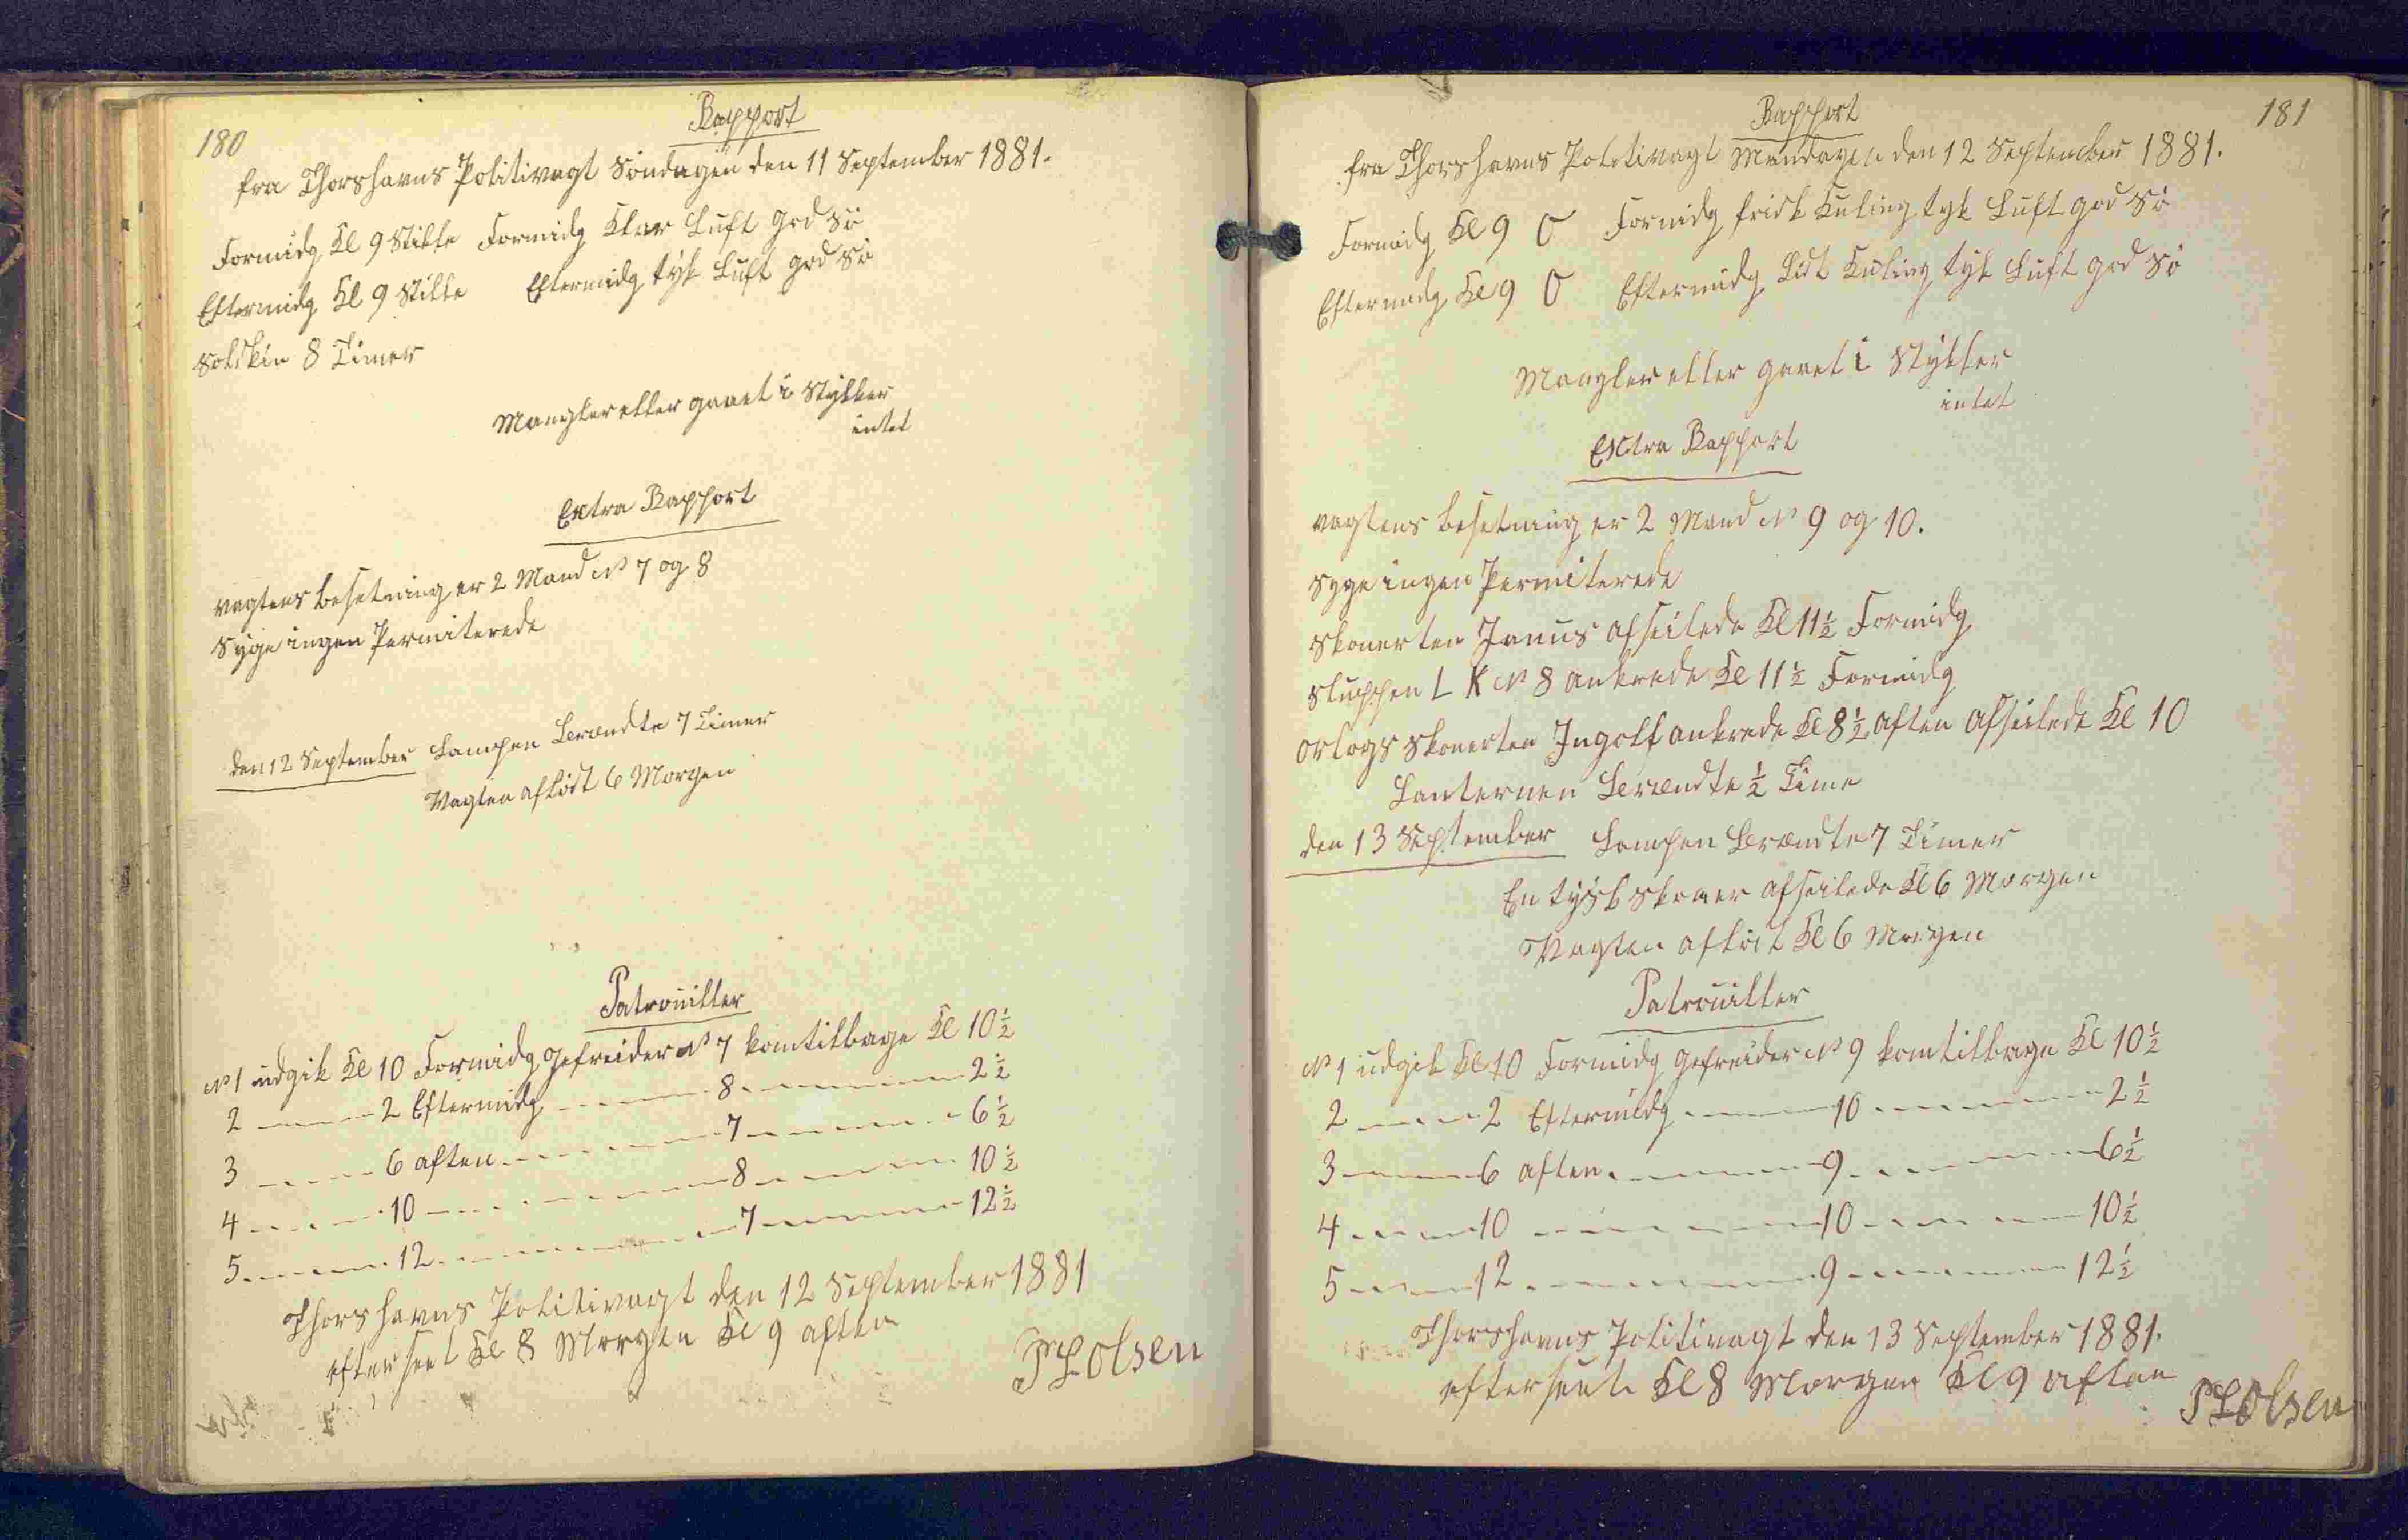 180
Rapport
fra Thorshavns Politivagt Söndagen den 11 September 1881.
Formidg Kl 9 Stille Formidg Klar Luft god Sö
Eftermidg Kl 9 Stille Eftermidg tyk Luft god Sö
Solskin 8 Timer
Mangler eller gaaet i Stykker
intet
Extra Rapport
Vagtens besetning er 2 Mand No 7 og 8
Syge ingen Permiterede
den 12 September Lampen Brændte 7 Timer
Vagten aflöst 6 Morgen
Patrouiller
No 1 udgik Kl 10 Formidg gefreider No 7 kom tilbage Kl 10½
2 - - - 2 Eftermidg - - - 8 - - - 2½
3 - - - 6 aften - - - 7 - - - 6½
4 - - - 10 - - - 8 - - - 10½
5 - - - 12 - - - 7 - - - 12½
Thorshavns Politivagt den 12 September 1881
efterseet Kl 8 Morgen Kl 9 aften
Olsen
181
Rapport
fra Thorshavns Politivagt Mandagen den 12 September 1881.
Formidg Kl 9 O Formidg frisk Kuling tyk Luft god Sö
Eftermidg Kl 9 O Eftermidg Lidt Kuling tyk Luft god Sö
Mangler eller gaaet i Stykker
intet
Extra Rapport
Vagtens besetning er 2 Mand No 9 og 10.
Syge ingen Permiterede
Skonerten Janus afseilede Kl 11½ Formidg
Sluppen L K No 8 ankrede Kl 11½ Formidg
Orlogs Skonerten Ingolf ankrede Kl 8½ aften afseilede Kl 10
Lanternen Brændte ½ Time
den 13 September Lampen Brændte 7 Timer
En tysk Skoner afseilede Kl 6 Morgen
Vagten aflöst Kl 6 Morgen
Patrouiller
No 1 udgik Kl 10 Formidg gefreider No 9 kom tilbage Kl 10½
2 - - - 2 Eftermidg - - - 10 - - - 2½
3 - - - 6 aften - - - 9 - - - 6½
4 - - - 10 - - - 10 - - - 10½
5 - - - 12 - - - 9 - - - 12½
Thorshavns Politivagt den 13 September 1881.
efterseet Kl 8 Morgen Kl 9 aften
Olsen